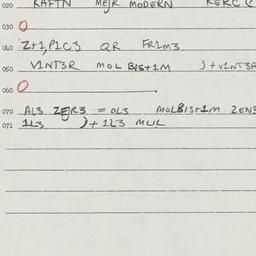 020 KAFTN MEJR MODERN KERC
030 O
040 Z+1,P1C3 QR FR1M3
050 V1NT3R MOL B1S+1M J+V1NT3R
060 O
070 AL3 ZEJR3 = OL3 MOLB1S+1M ZEN3
071 1L3 J+1L3 MUL